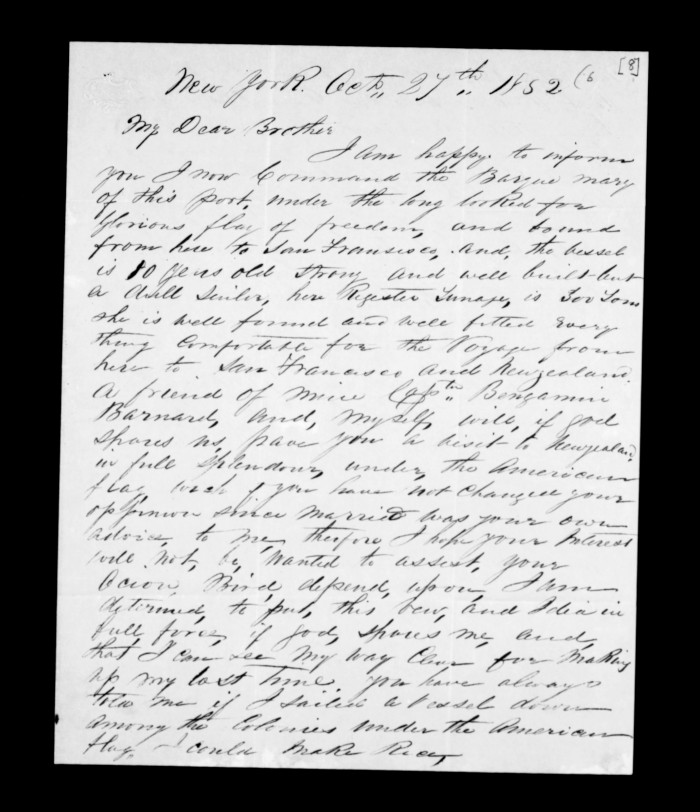 [8]
New York. Octb,, 27th,, 1852 (6
My Dear Brother
I am happy to inform
you I now Command the Barque mary
of this port, under the long looked for
Glorious flag of freedom, and bound
from here to San Fransisco, And, the vessel
is 10 years old strong and well built but
a dull Sailer, here Register Tunage, is 300 Tons
she is well found and well fitted Every
thing Comfortable for the Voyage from
here to San Francisco and Newzealand.
A friend of mine Capt,, Bengamin
Barnard, and, myself, will, if god
spares us, pave you a visit to Newzealand,
in full Splendour, under, the American
flag, wich if you have not Changed your
oppinion since married was your own
advice, to me, therefore I hope your Interest
will not, be, wanted to assest, your
Ocion, Bird, depend, upon, I am
determed, to put, this vew, and Idea in
full force, if god, spares me, and,
that I can see my way Clear for making
up my lost Time. you have always
told me if I sailed a Vessel down
among the Colonies under the American
flag, I could Make Rice,